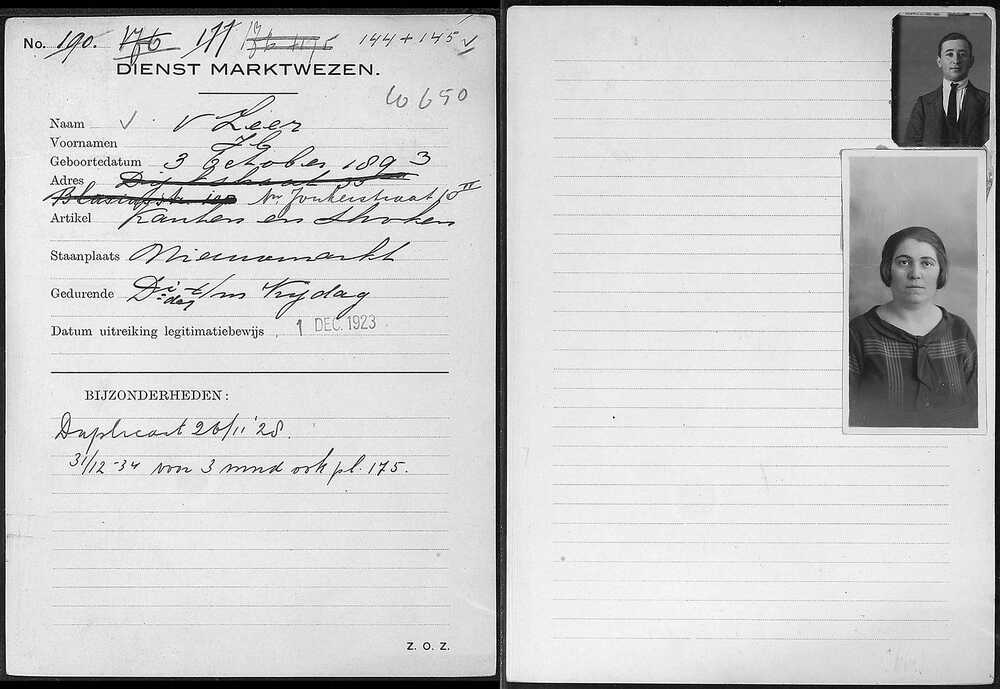 No. 190. 176 177 176 + 175 144 + 145 √
DIENST MARKTWEZEN.
60650
Naam √ v Leer
Voornamen
Geboortedatum 3 October 1893
Adres Dijkstraat 55
Blasiusstr. Nw Jonkerstraat 10 II
Artikel Kanten en Stroken
Staanplaats Nieuwmarkt
Gedurende Di-dag t/m Vrijdag
Datum uitreiking legitimatiebewijs 1 DEC. 1923
BIJZONDERHEDEN:
Duplicaat 26/11 '28.
31/12-34 voor 3 mnd ook pl. 175.
Z. O. Z.